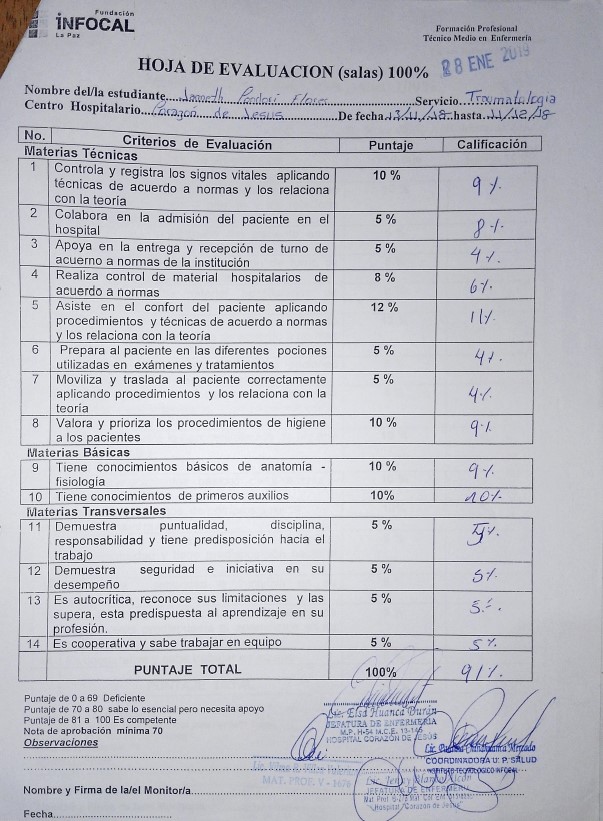 Fundación
INFOCAL
La Paz
Formación Profesional
Técnico Medio en Enfermería
28 ENE 2019
HOJA DE EVALUACION (salas) 100%
Nombre del/la estudiante Flores Servicio Traumatologia
Centro Hospitalario Corazón de Jesus De fecha 13/11/18 hasta 11/12/18
No. Criterios de Evaluación Puntaje Calificación
Materias Técnicas
1 Controla y registra los signos vitales aplicando 10 % 9 %
técnicas de acuerdo a normas y los relaciona
con la teoría
2 Colabora en la admisión del paciente en el 5 % 8 %
hospital
3 Apoya en la entrega y recepción de turno de 5 % 4 %
acuerno a normas de la institución
4 Realiza control de material hospitalarios de 8 % 6 %
acuerdo a normas
5 Asiste en el confort del paciente aplicando 12 % 11 %
procedimientos y técnicas de acuerdo a normas
y los relaciona con la teoría
6 Prepara al paciente en las diferentes pociones 5 % 4 %
utilizadas en exámenes y tratamientos
7 Moviliza y traslada al paciente correctamente 5 % 4 %
aplicando procedimientos y los relaciona con la
teoría
8 Valora y prioriza los procedimientos de higiene 10 % 9 %
a los pacientes
Materias Básicas
9 Tiene conocimientos básicos de anatomía - 10 % 9 %
fisiología
10 Tiene conocimientos de primeros auxilios 10% 10%
Materias Transversales
11 Demuestra puntualidad, disciplina, 5 %
responsabilidad y tiene predisposición hacia el
trabajo
12 Demuestra seguridad e iniciativa en su 5 % 5 %
desempeño
13 Es autocrítica, reconoce sus limitaciones y las 5 % 5
supera, esta predispuesta al aprendizaje en su
profesión.
14 Es cooperativa y sabe trabajar en equipo 5 % 5 %
PUNTAJE TOTAL 100% 91 %
Puntaje de 0 a 69 Deficiente
Puntaje de 70 a 80 sabe lo esencial pero necesita apoyo
Puntaje de 81 a 100 Es competente
Nota de aprobación mínima 70
Observaciones
Lic. Elsa Huanca Durán
JEFATURA DE ENFERMERÍA
M.P. H-54 M.C.E. 13-145
HOSPITAL CORAZÓN DE JESÚS
COORDINADORA U.P. SALUD
INSTITUTO TECNOLÓGICO INFOCAL
MAT. PROF. V - 1676
JEFATURA DE ENFERMERIA
Hospital "Corazón de Jesús"
Nombre y Firma de la/el Monitor/a
Fecha